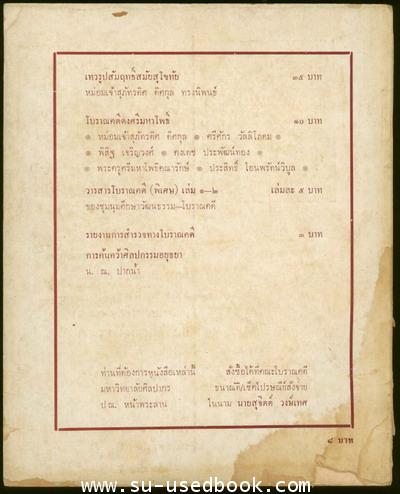 เทวรูปสัมฤทธิ์สมัยสุโขทัย ๓๕ บาท
หม่อมเจ้าสุภัทรดิศ ดิศกุล ทรงนิพนธ์
โบราณคดีดงศรีมหาโพธิ์ ๑๐ บาท
๑ หม่อมเจ้าสุภัทรดิศ ดิศกุล ๑ ศรีศักร วัลลิโภดม ๑
๑ พิสิฐ เจริญวงศ์ ๑ คงเดช ประพัฒน์ทอง ๑
๑ พระครูศรีมหาโพธิคณารักษ์ ๑ ประสิทธิ์ โอนพรัตน์วิบูล ๑
วารสารโบราณคดี (พิเศษ) เล่ม ๑—๒ เล่มละ ๕ บาท
ของชุมนุมศึกษาวัฒนธรรม—โบราณคดี
รายงานการสำรวจทางโบราณคดี ๓ บาท
การค้นคว้าศิลปกรรมอยุธยา
น. ณ. ปากน้ำ
ท่านที่ต้องการหนังสือเหล่านี้ สั่งซื้อได้ที่คณะโบราณคดี
มหาวิทยาลัยศิลปากร ธนาณัติ/เช็คไปรษณีย์สั่งจ่าย
ปณ. หน้าพระลาน ในนาม นายสุจิตต์ วงษ์เทศ
๘ บาท
www.su-usedbook.com